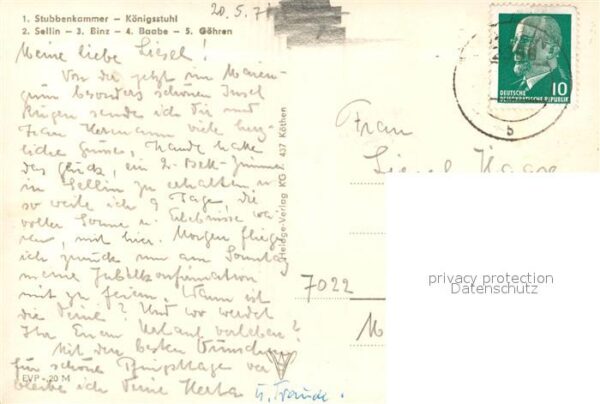 1. Stubbenkammer – Königsstuhl
2. Sellin – 3. Binz – 4. Baabe – 5. Göhren
20.5.71
Meine liebe Liesel!
Von der jetzt im Maien-
grün besonders schönen Insel
Rügen sende ich dir und
Frau Hermann viele herz-
liche Grüsse, Traude hatte
das Glück, ein 2-Bett-Zimmer
in Sellin zu erhalten u.
so weile ich 9 Tage, die
voller Sonne u. Erlebnisse wa-
ren, mit hier. Morgen fliege
ich zurück um am Sonntag
meine Jubelkonfirmation
mit zu feiern. Wann ist
die Deine? Und wo werdet
Ihr Euern Urlaub verleben?
Mit den besten Wünschen
für schöne Pfingsttage ver-
bleibe ich Deine Herta u. Traude.
EVP - 20 M
Heldge-Verlag KG 437 Köthen
DEUTSCHE
DEMOKRATISCHE REPUBLIK
10
b
Frau
Liesel
7022
privacy protection
Datenschutz